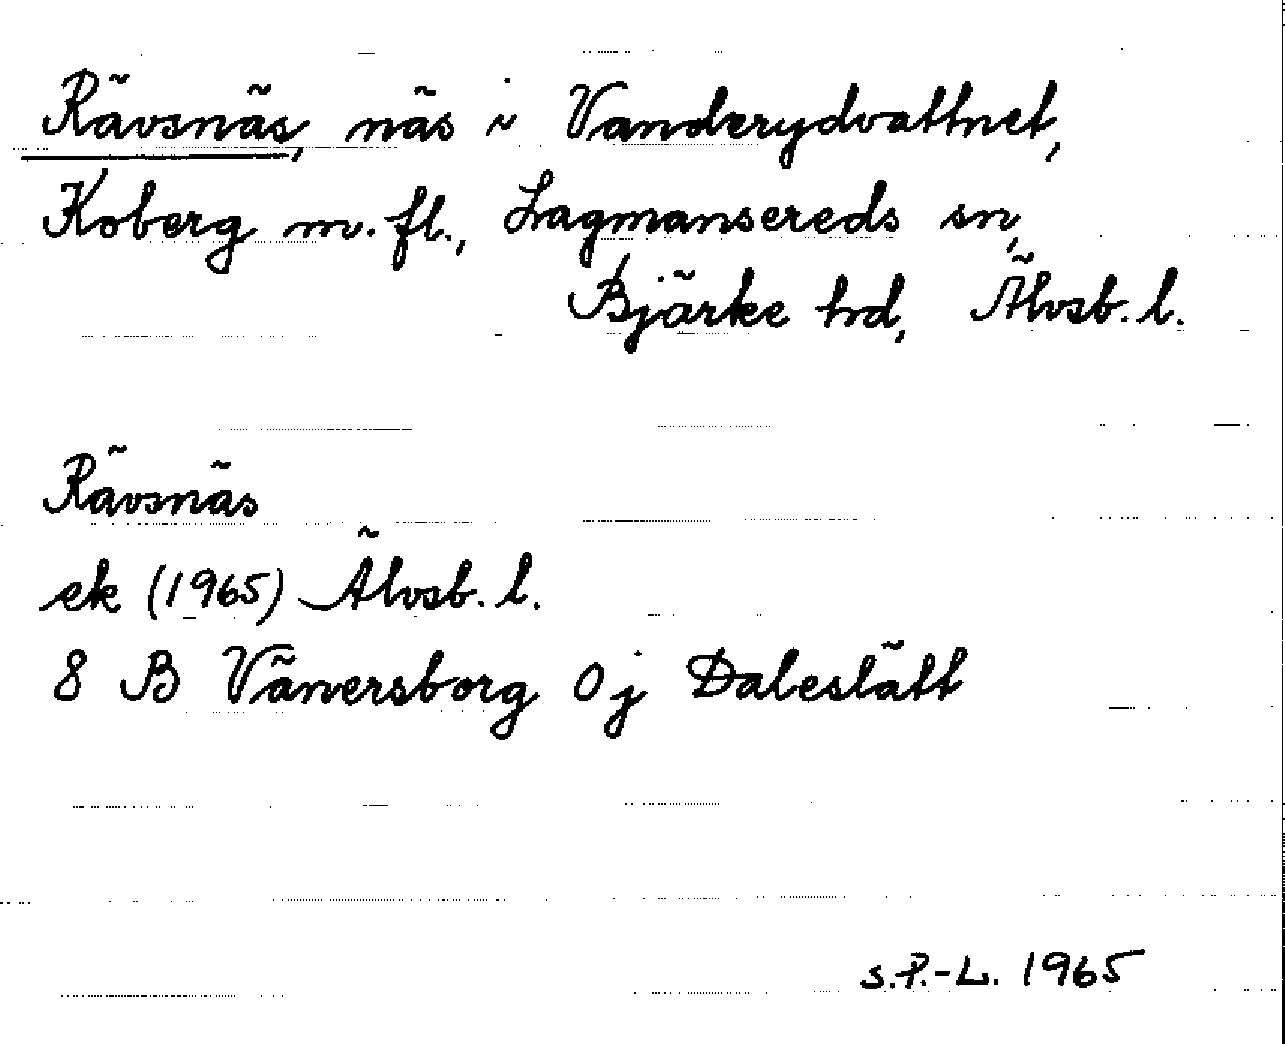 Rävsnäs, näs i Vanderydvattnet,
Koberg m.fl., Lagmansereds sn,
Bjärke hd, Älvsb. l.
Rävsnäs
ek (1965) Älvsb. l.
8 B Vänersborg 0j Daleslätt
S.P.-L. 1965